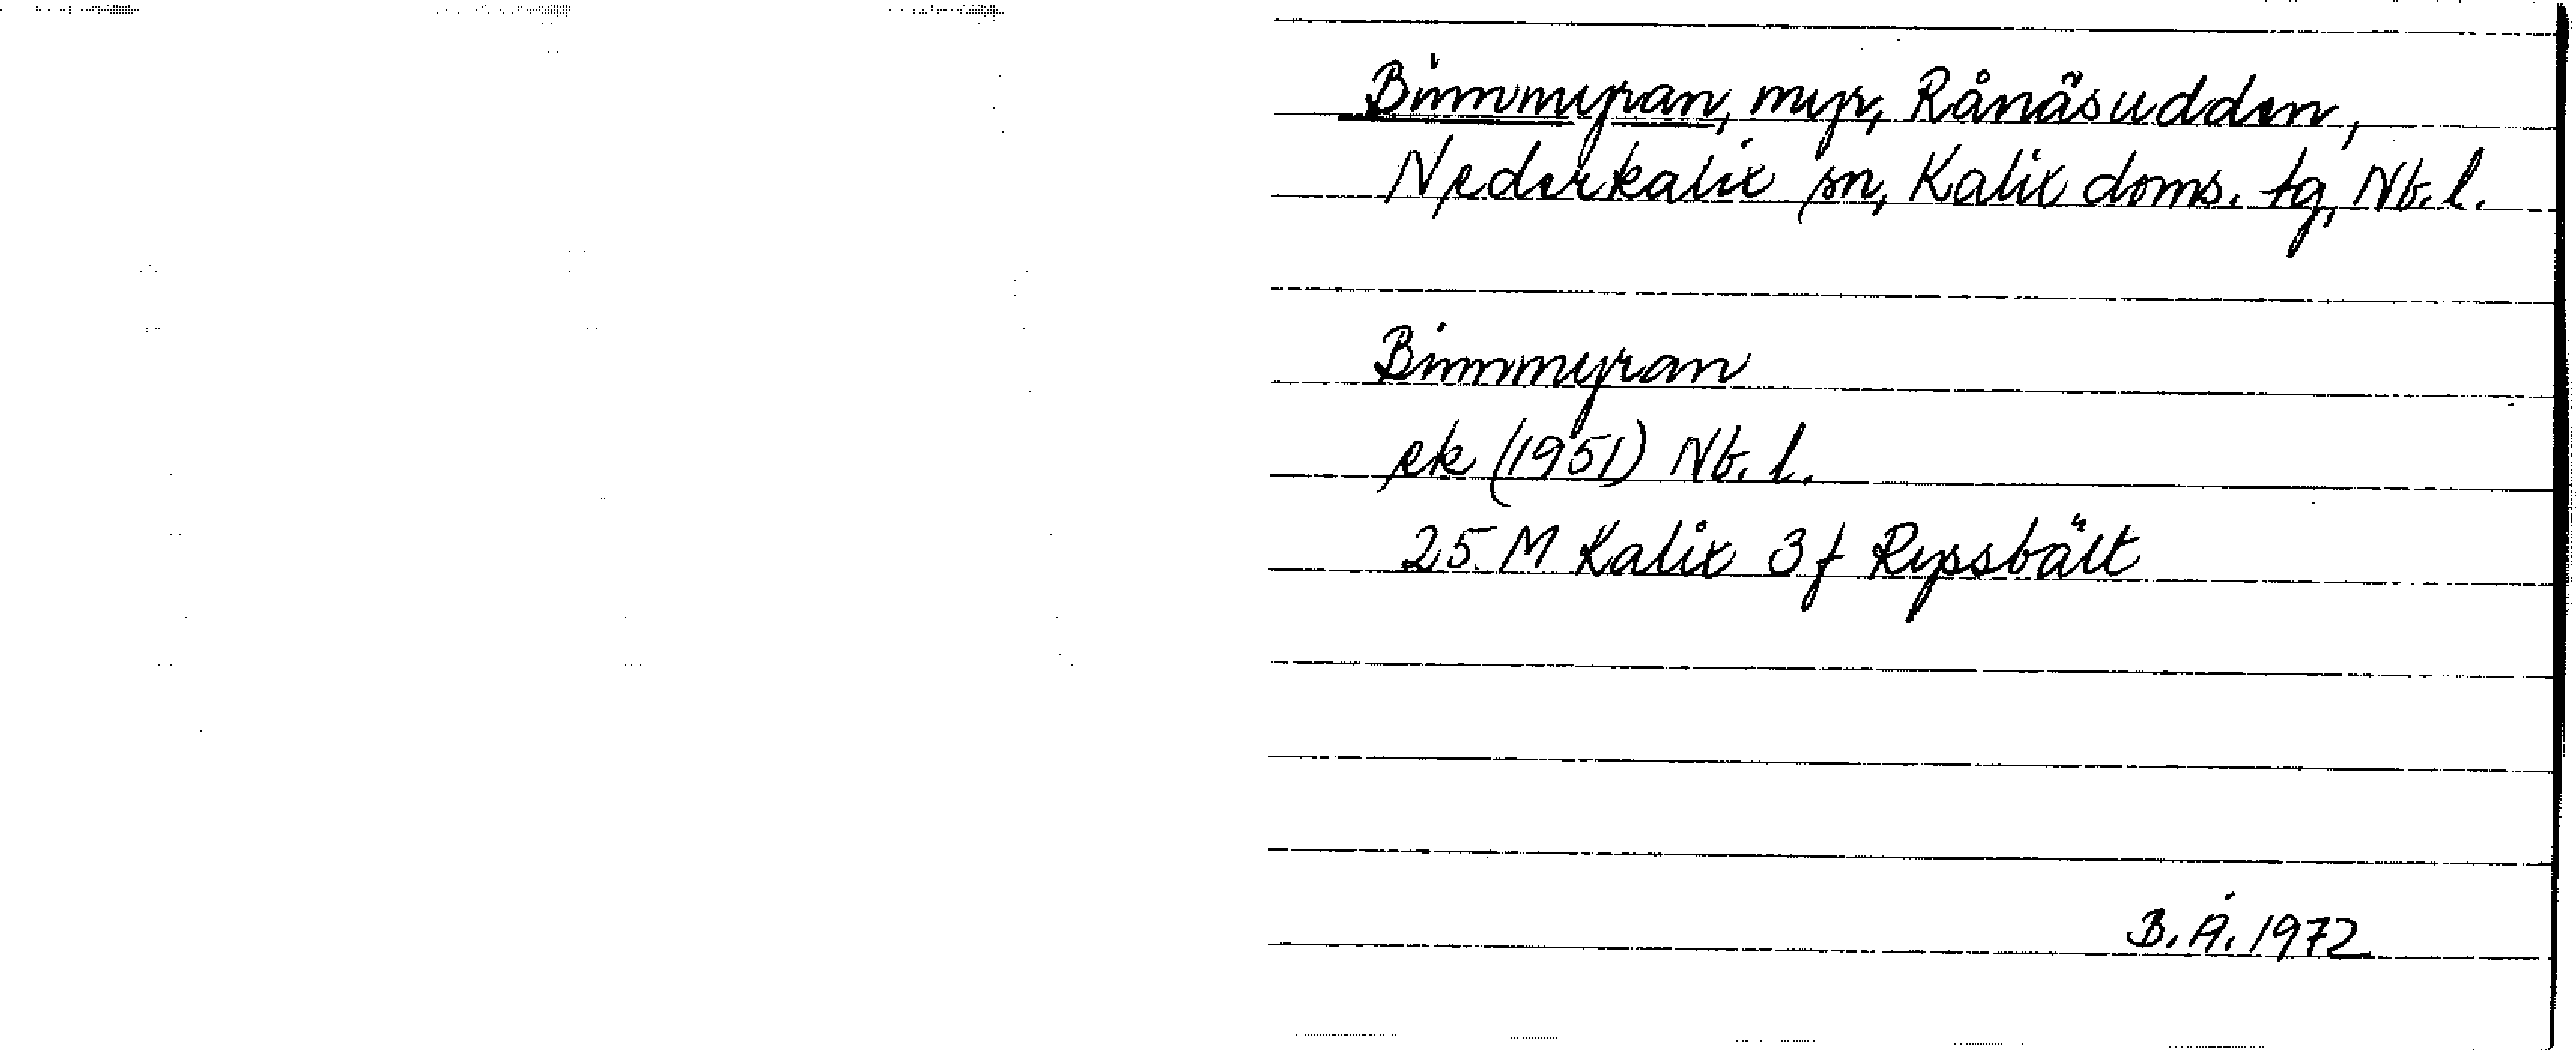 Binnmyran, myr, Rånäsudden,
Nederkalix sn, Kalix doms. tg, Nb. l.
Binnmyran
ek (1951) Nb. l.
25 M Kalix 3 f Ryssbält
B. Å. 1972